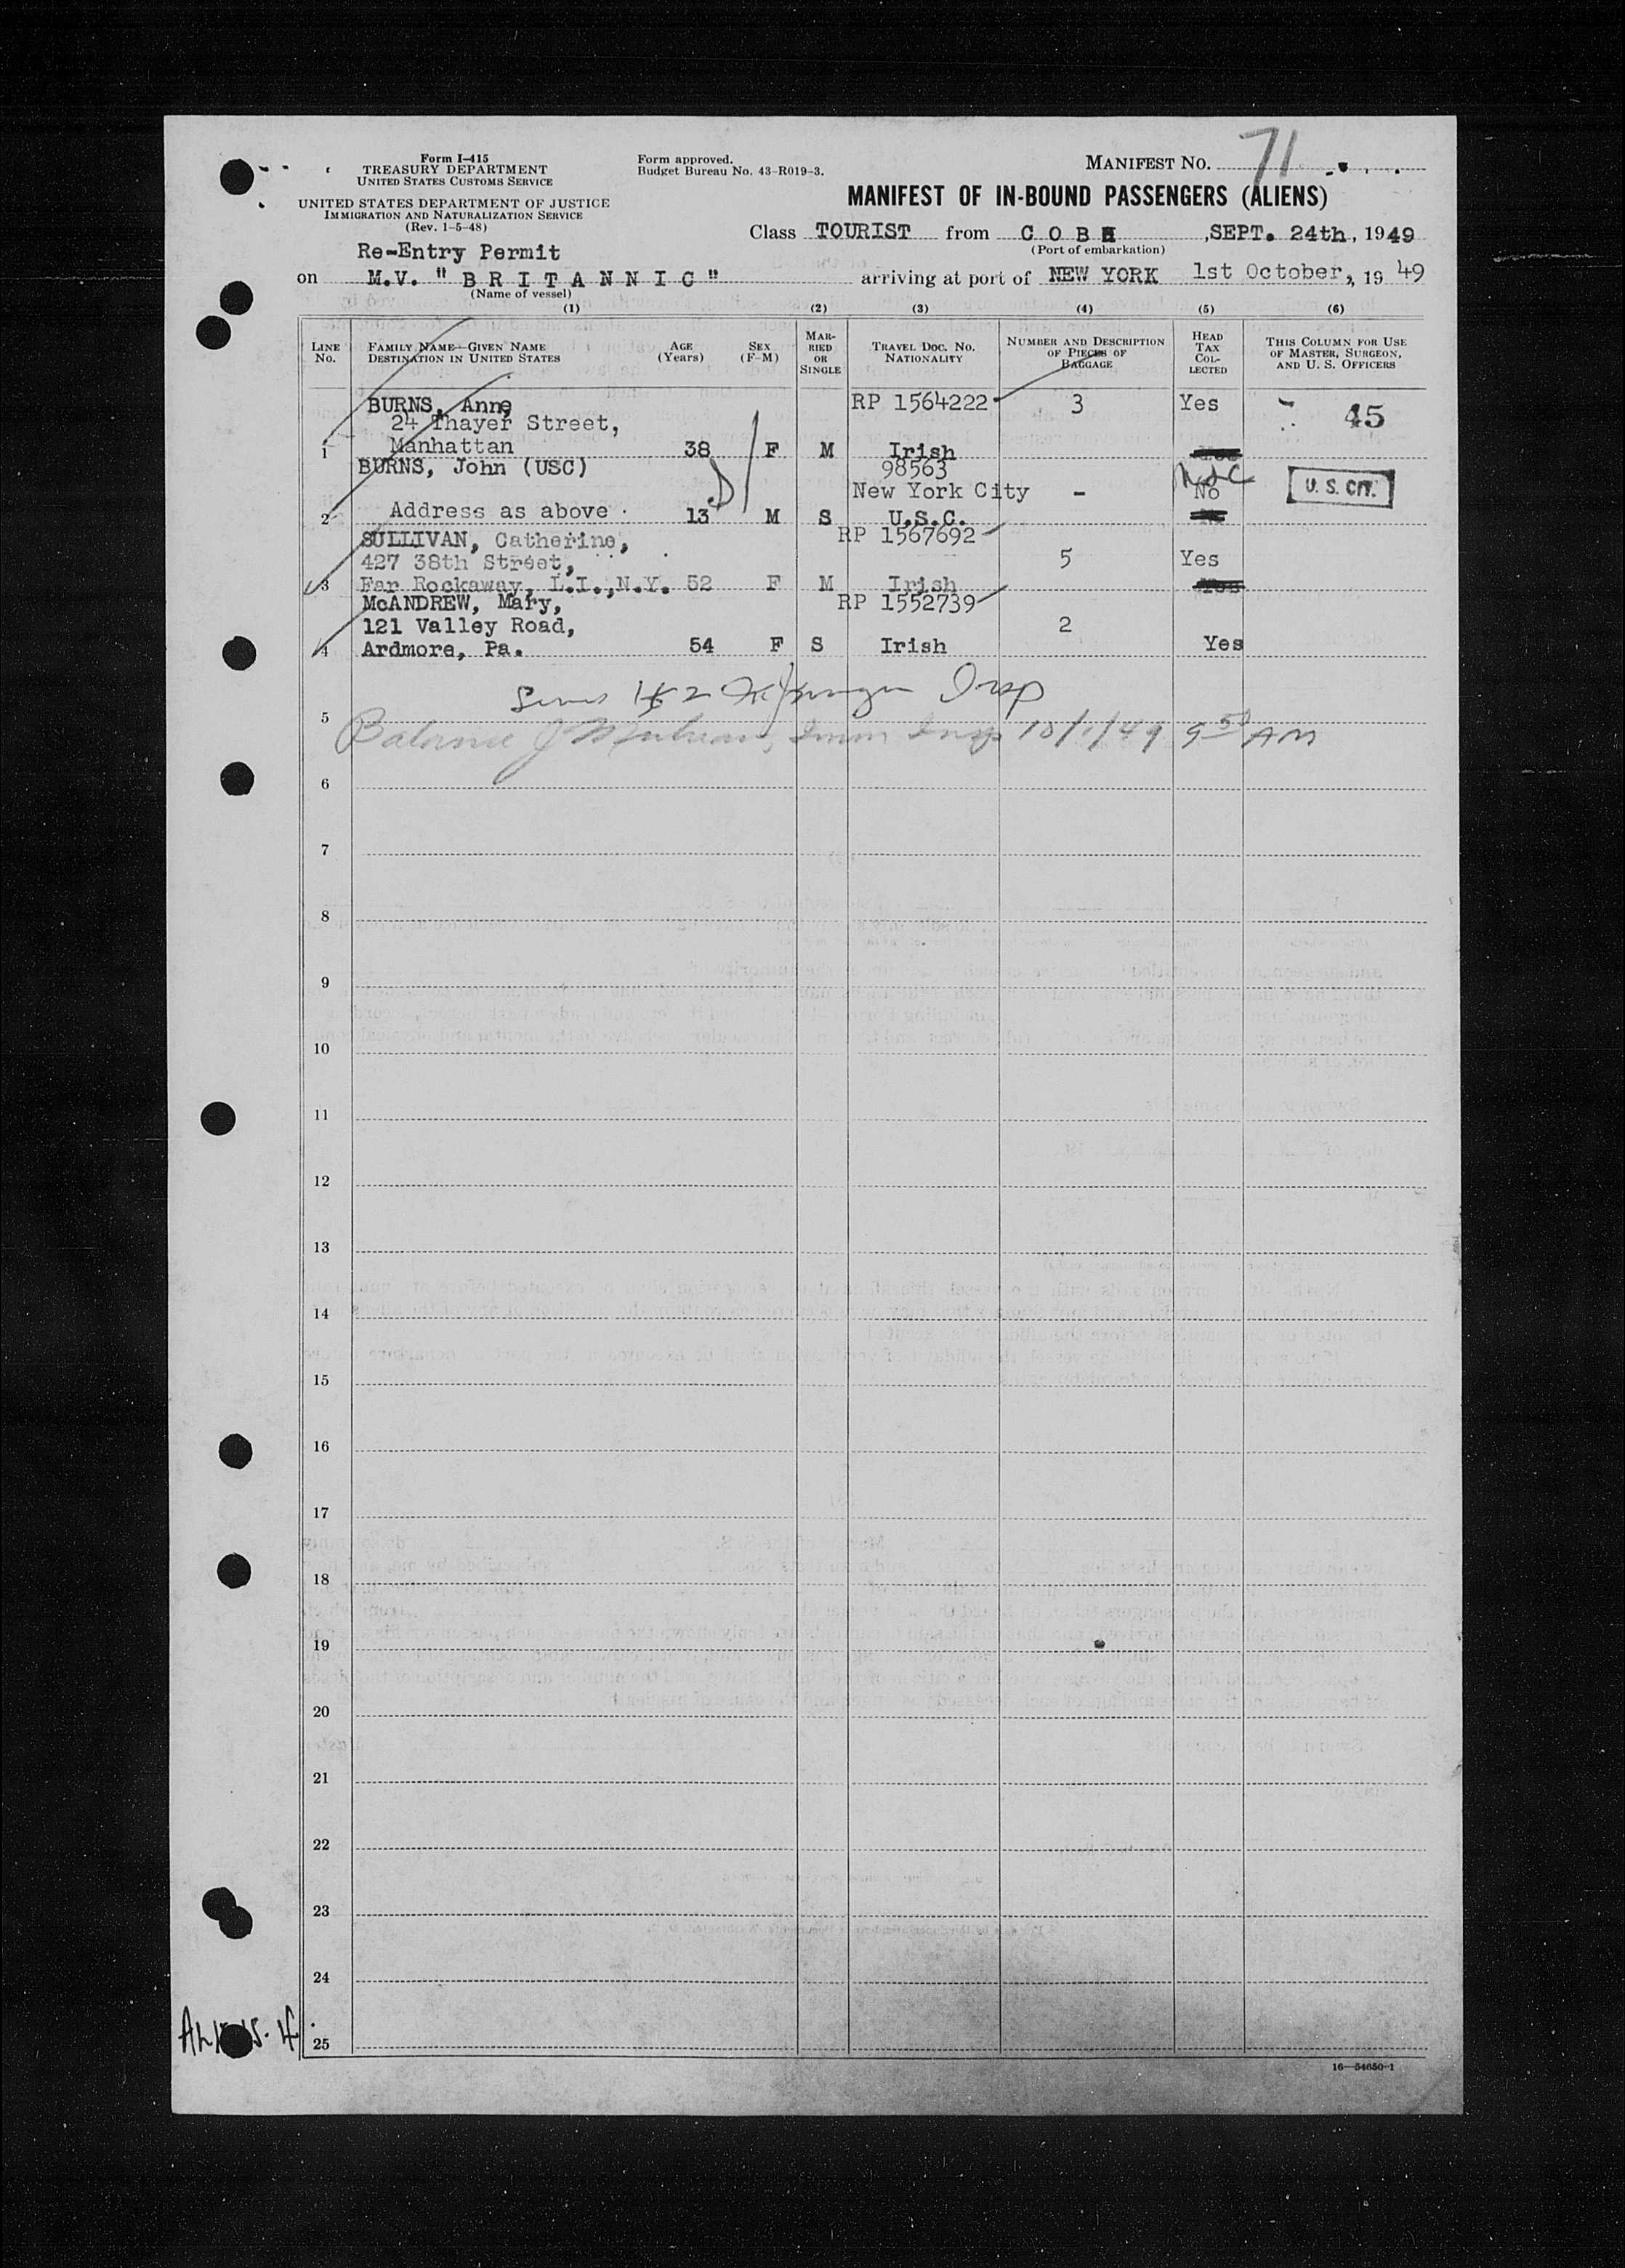 Form I-415
TREASURY DEPARTMENT
UNITED STATES CUSTOMS SERVICE
UNITED STATES DEPARTMENT OF JUSTICE
IMMIGRATION AND NATURALIZATION SERVICE
(Rev. 1-5-48)
Form approved.
Budget Bureau No. 43-R019-3.
MANIFEST NO. 71
MANIFEST OF IN-BOUND PASSENGERS (ALIENS)
Class TOURIST from COBH, SEPT. 24th, 1949
(Port of embarkation)
Re-Entry Permit
on M.V. "BRITANNIC" arriving at port of NEW YORK 1st October, 1949
(Name of vessel)
(1) (2) (3) (4) (5) (6)
LINE No. FAMILY NAME—GIVEN NAME DESTINATION IN UNITED STATES AGE (Years) SEX (F-M) MARRIED OR SINGLE TRAVEL DOC. NO. NATIONALITY NUMBER AND DESCRIPTION OF PIECES OF BAGGAGE HEAD TAX COLLECTED THIS COLUMN FOR USE OF MASTER, SURGEON, AND U. S. OFFICERS
BURNS, Anne RP 1564222 3 Yes 45
24 Thayer Street,
1 Manhattan 38 F M Irish
BURNS, John (USC) 98563
New York City - No U.S. CIT.
2 Address as above 13 M S U.S.C.
SULLIVAN, Catherine, RP 1567692
427 38th Street, 5 Yes
3 Far Rockaway, L.I.,N.Y. 52 F M Irish
McANDREW, Mary, RP 1552739
121 Valley Road, 2
4 Ardmore, Pa. 54 F S Irish Yes
5
Balance J Imm Insp 10/1/49 9 50 AM
6
7
8
9
10
11
12
13
14
15
16
17
18
19
20
21
22
23
24
25
16—54650-1